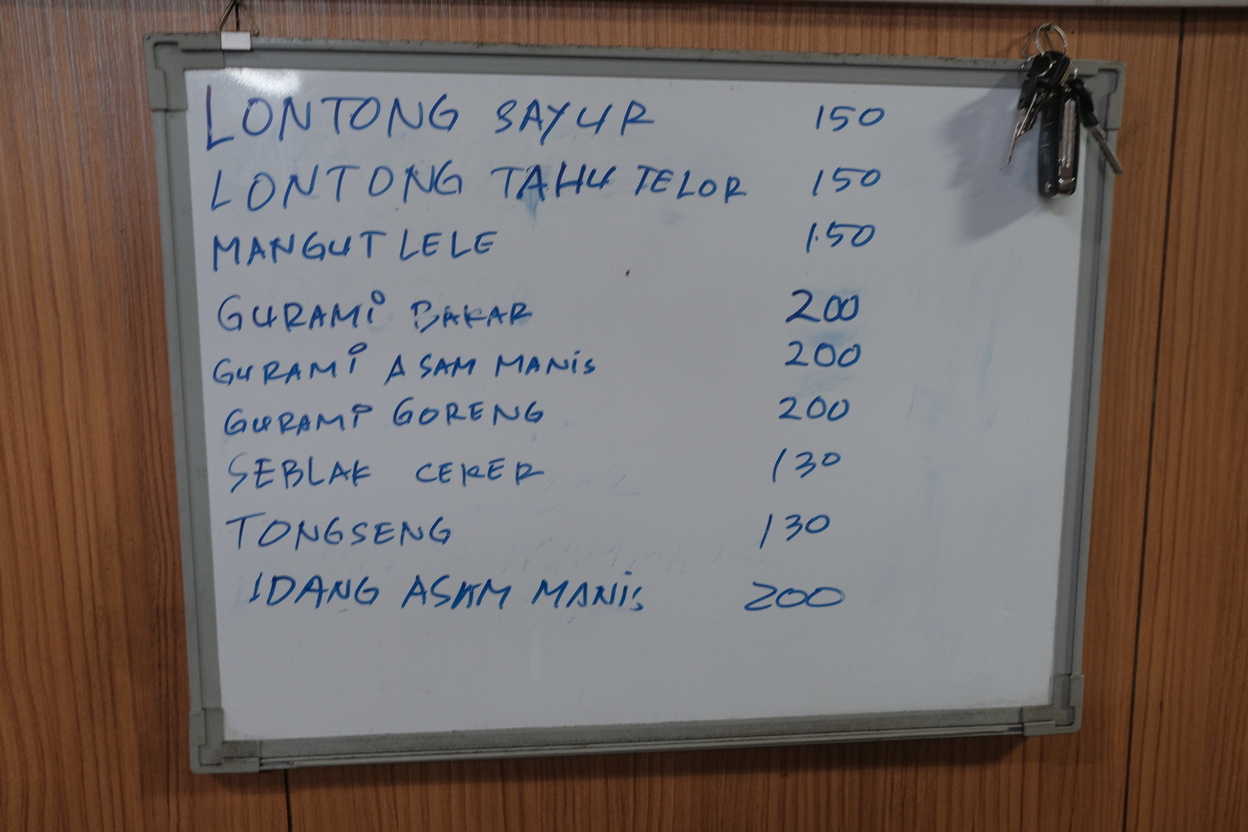 LONTONG SAYUR 150
LONTONG TAHU TELOR 150
MANGUT LELE 150
GURAMi BAKAR 200
GURAMi ASAM MANiS 200
GURAMi GORENG 200
SEBLAK CEKER 130
TONGSENG 130
IDANG ASAM MANiS 200